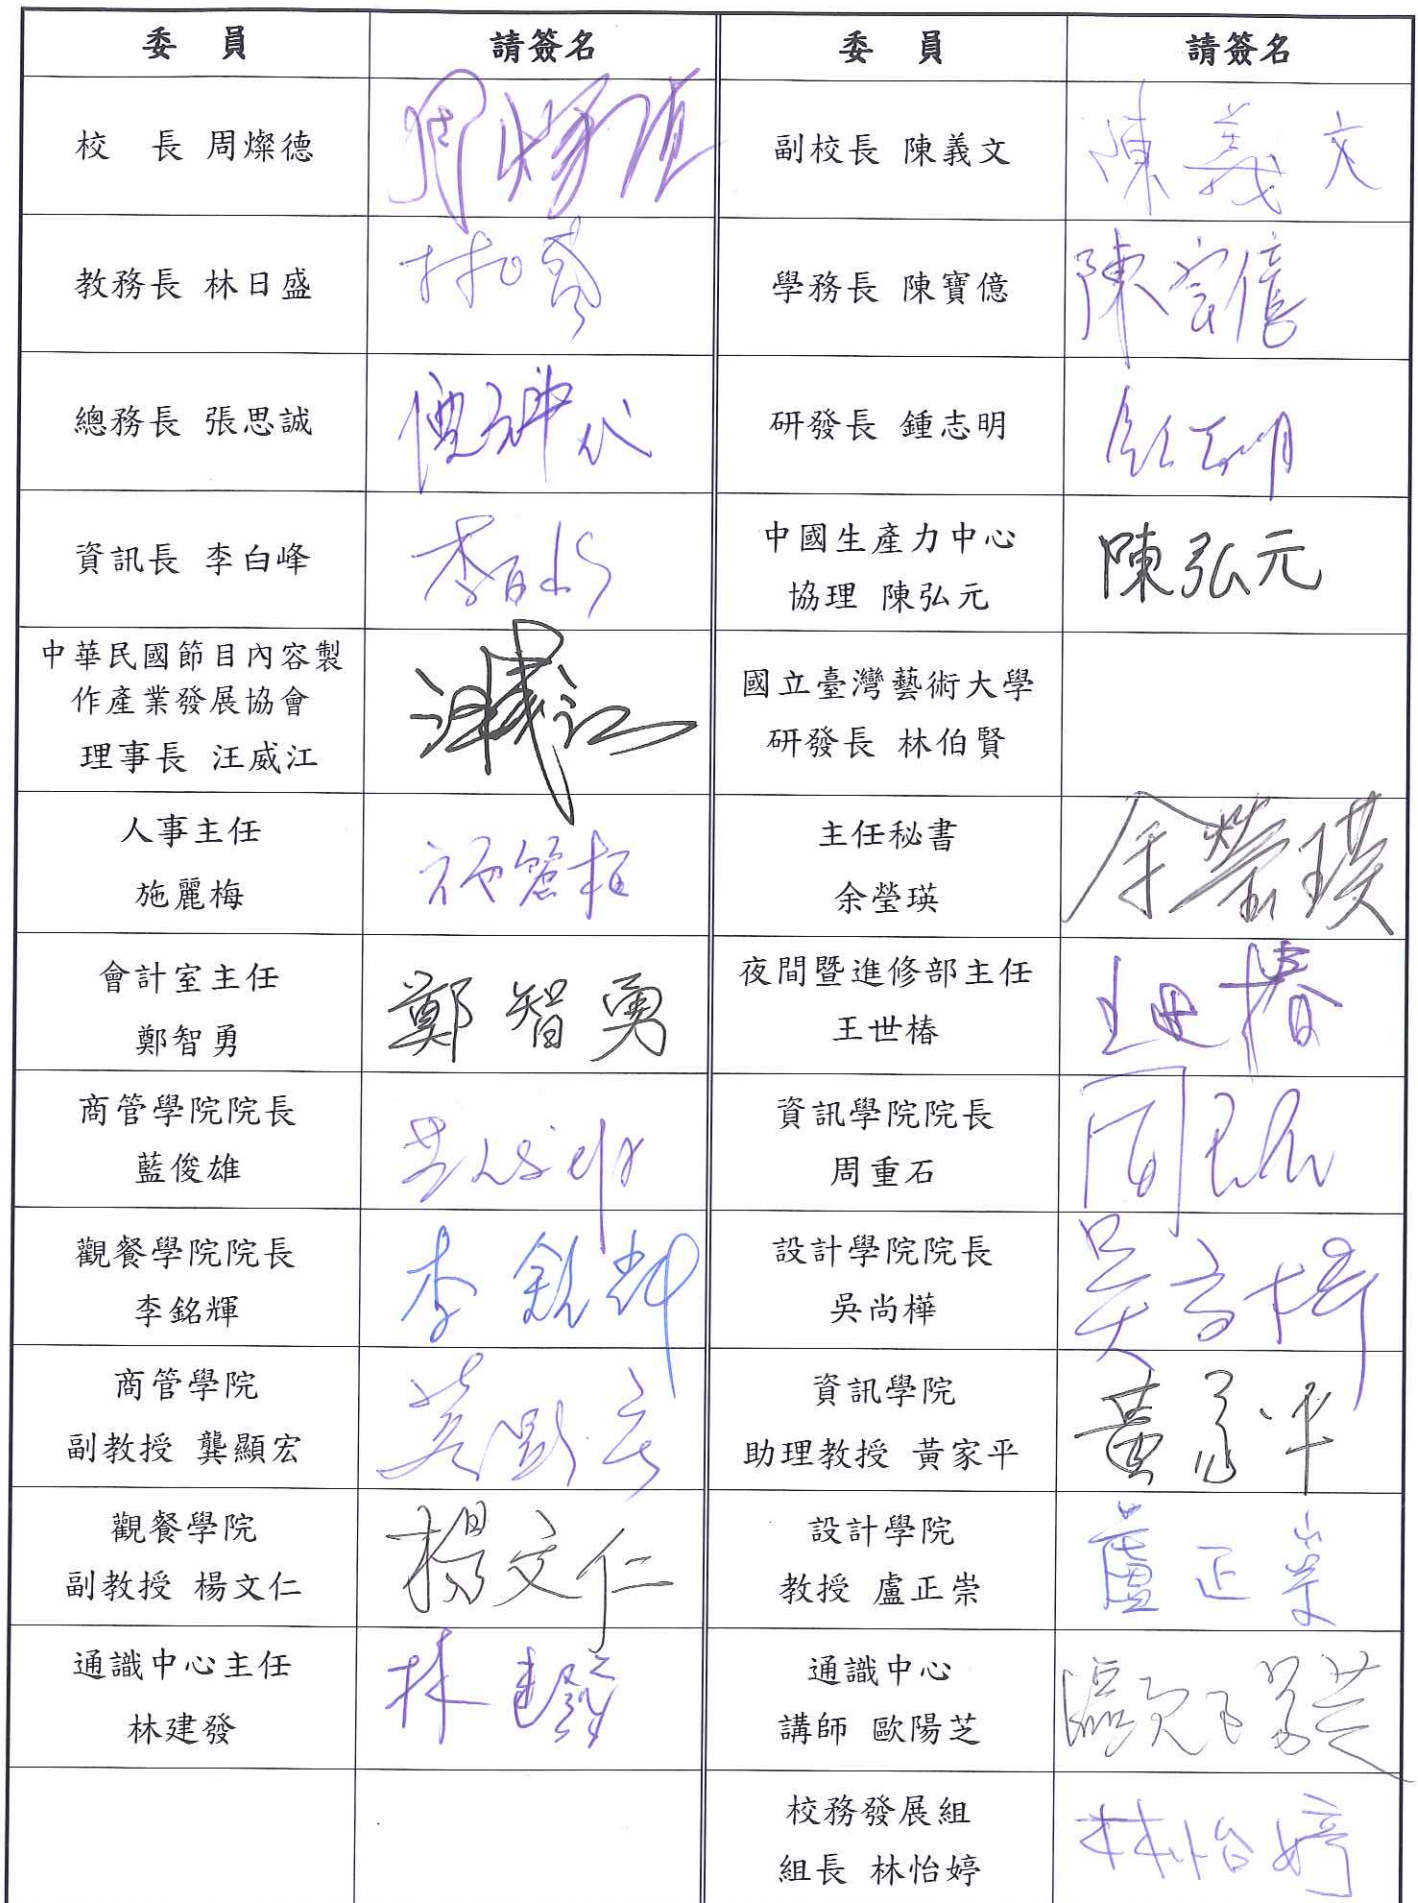 委 員 請簽名 委 員 請簽名
校 長 周燦德 周燦德 副校長 陳義文 陳義文
教務長 林日盛 林日盛 學務長 陳寶億 陳宝億
總務長 張思誠 代 研發長 鍾志明 鍾志明
資訊長 李白峰 李白峰 中國生產力中心
協理 陳弘元 陳弘元
中華民國節目內容製
作產業發展協會
理事長 汪威江 汪威江 國立臺灣藝術大學
研發長 林伯賢
人事主任
施麗梅 主任秘書
余瑩瑛 余瑩瑛
會計室主任
鄭智勇 鄭智勇 夜間暨進修部主任
王世椿 王世椿
商管學院院長
藍俊雄 資訊學院院長
周重石 周重石
觀餐學院院長
李銘輝 李銘輝 設計學院院長
吳尚樺 吳尚樺
商管學院
副教授 龔顯宏 資訊學院
助理教授 黃家平 黃家平
觀餐學院
副教授 楊文仁 楊文仁 設計學院
教授 盧正崇 盧正崇
通識中心主任
林建發 林建發 通識中心
講師 歐陽芝 歐陽芝
校務發展組
組長 林怡婷 林怡婷